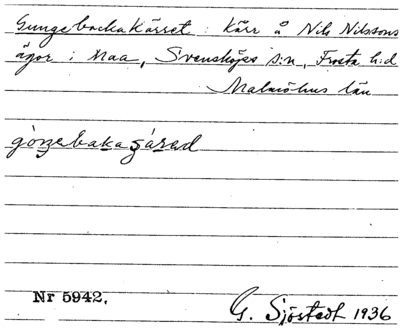 Gungebackakärret : Kärr å Nils Nilssons
ägor i Maa, Svensköps s:n, Frosta h:d
Malmöhus län
gòŋebakaçárəd
Nr 5942.
G. Sjöstedt 1936